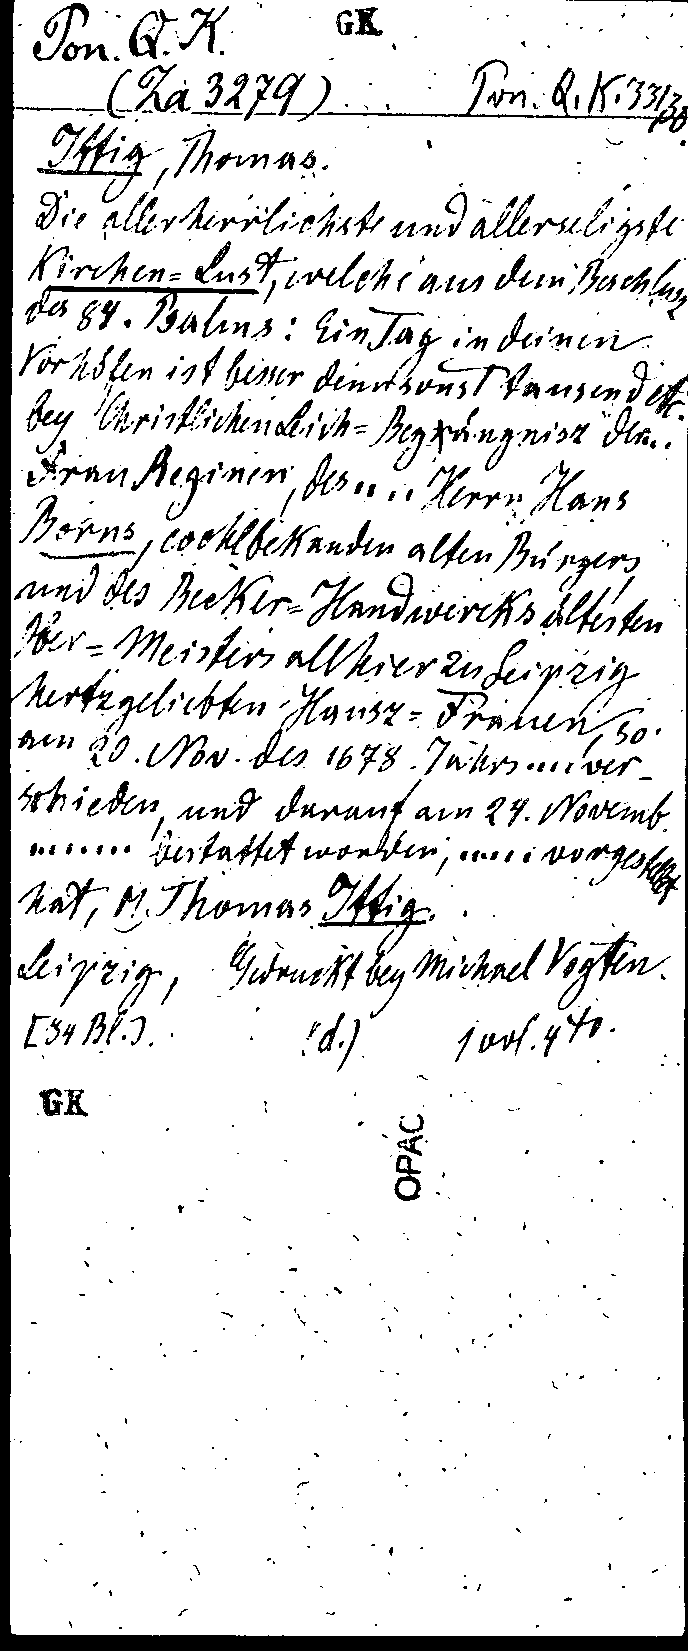 Pon. Q. K. GK
(Za 3279) ... Pon. Q. K. 331
Ittig, Thomas.
Die allerherrlichste und allerseligste
Kirchen=Lust, welche aus dem Beschlusz
des 84. Psalms: Ein Tag in deinen
Vorhöfen ist besser denn sonst tausend etc.
bey Christlichen Leich=Begängnisz der..
Frau Reginen, des .... Herrn Hans
Borns, wohlbekanden alten Bürgers,
und des Becker=Handwercks ältesten
Ober=Meisters allhier zu Leipzig
hertzgeliebten Hausz=Frauen, so
am 20. Nov. des 1678. Jahrs .... ver-
schieden, und darauf am 24. Novemb.
...... bestattet worden, .... vorgestellet
hat, M. Thomas Ittig.
Leipzig, Gedruckt bey Michael Vogten.
[34 Bl.]. (d.) 1 vol. 4to.
GK
OPAC